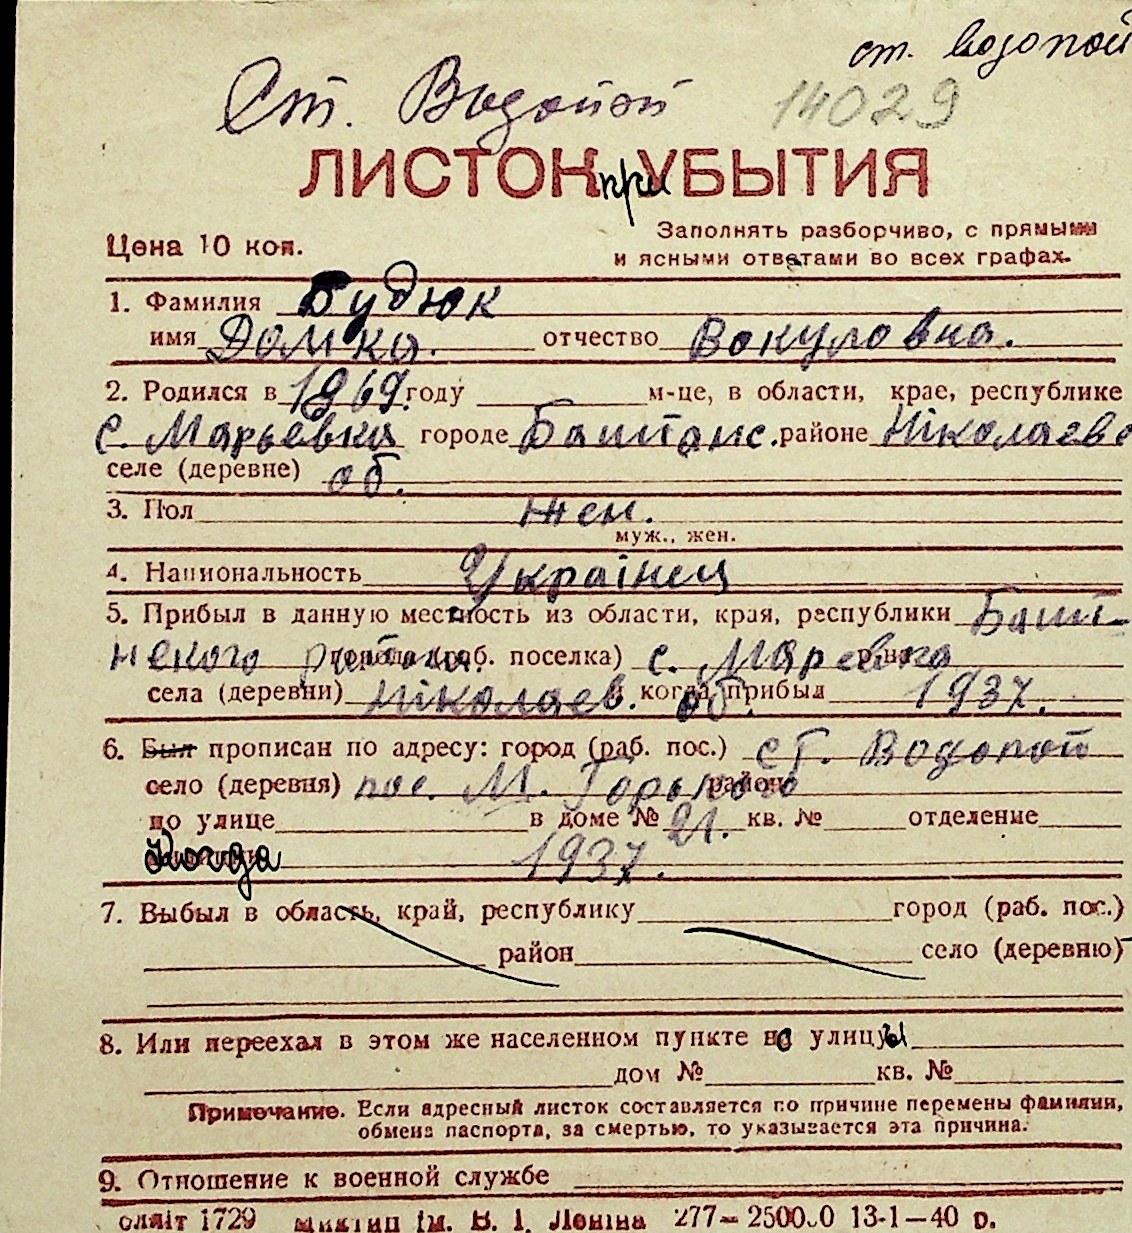 ст. Водопой
Ст. Водопой 14029
ЛИСТОК при УБЫТИЯ
Цена 10 коп.
Заполнять разборчиво, с прямыми
и ясными ответами во всех графах.
1. Фамилия Будюк
имя Домка. отчество Вакуловна.
2. Родился в 1869. году м-це, в области, крае, республике
с. Марьевка городе Баштанс. районе Ніколаевс
селе (деревне) об.
3. Пол Жен.
муж., жен.
4. Национальность Українец
5. Прибыл в данную местность из области, края, республики Башт-
нского района. города (раб. поселка) с. Маревка
села (деревни) Ніколаев. об. и когда прибыл 1937.
6. Был прописан по адресу: город (раб. пос.) ст. Водопой
село (деревня) пос. М. Горького район
по улице в доме № 21. кв. № отделение
Когда 1937.
7. Выбыл в область, край, республику город (раб. пос.)
район село (деревню)
8. Или переехал в этом же населенном пункте на с улицу ы
дом № кв. №
Примечание. Если адресный листок составляется по причине перемены фамилии,
обмена паспорта, за смертью, то указывается эта причина.
9. Отношение к военной службе
олліт 1729 ім. В. І. Леніна 277— 250000 13-1—40 р.